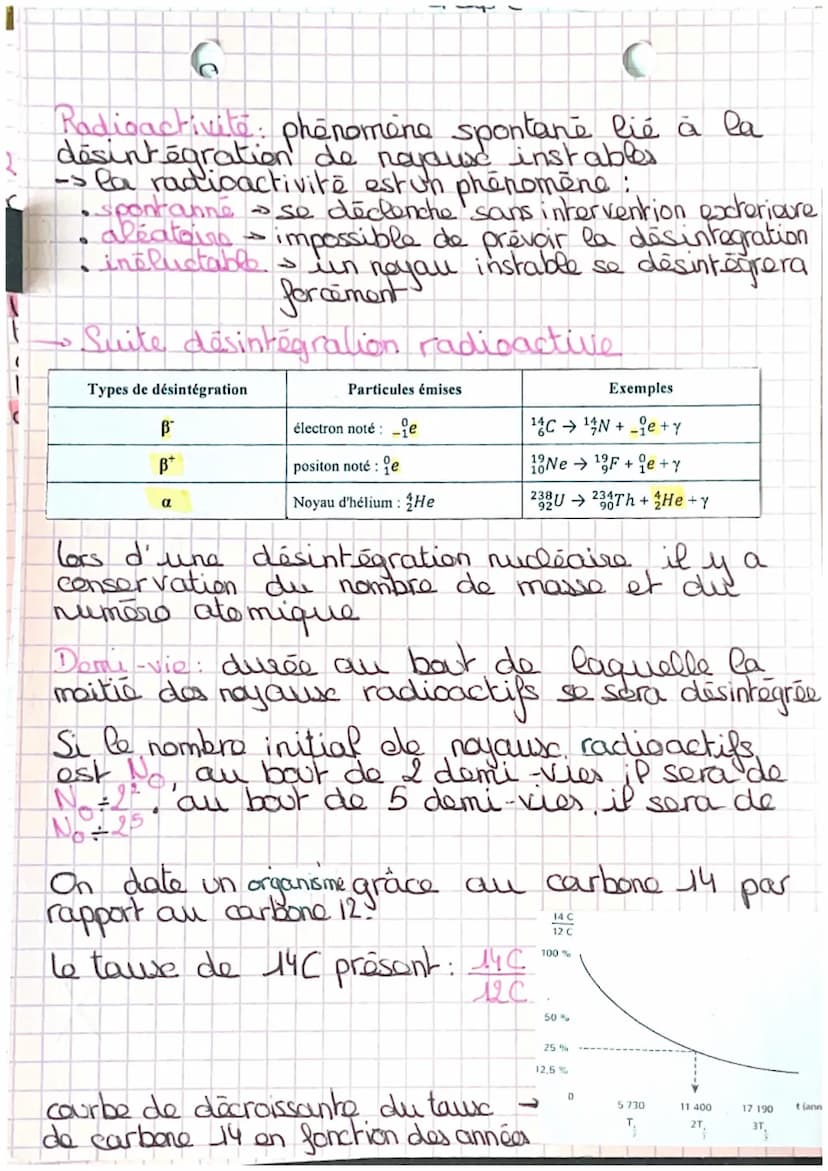 Radioactivité : phénomène spontané lié à la
désintégration de noyaux instables
-> la radioactivité est un phénomène :
• spontanné → se déclenche sans intervention exterieure
• aléatoire → impossible de prévoir la désintegration
• inéluctable → un noyau instable se désintégrera
forcément
→ Suite désintégration radioactive
Types de désintégration Particules émises Exemples
β⁻ électron noté : ⁰₋₁e ¹⁴₆C → ¹⁴₇N + ⁰₋₁e + γ
β⁺ positon noté : ⁰₁e ¹⁹₁₀Ne → ¹⁹₉F + ⁰₁e + γ
α Noyau d'hélium : ⁴₂He ²³⁸₉₂U → ²³⁴₉₀Th + ⁴₂He + γ
lors d'une désintégration nucléaire, il y a
conservation du nombre de masse et du
numéro atomique
Demi-vie : durée au bout de laquelle la
moitié des noyaux radioactifs se sera désintégrée
Si le nombre initial de noyaux radioactifs
est N₀, au bout de 2 demi-vies il sera de
N₀ ÷ 2², au bout de 5 demi-vies, il sera de
N₀ ÷ 2⁵.
On date un organisme grâce au carbone 14 par
rapport au carbone 12.
le taux de 14C présent : 14C
12C
14 C
12 C
100 %
50 %
25 %
12,5 %
0
5 730 11 400 17 190 t (ann
T 2T 3T
courbe de décroissante du taux →
de carbone 14 en fonction des années